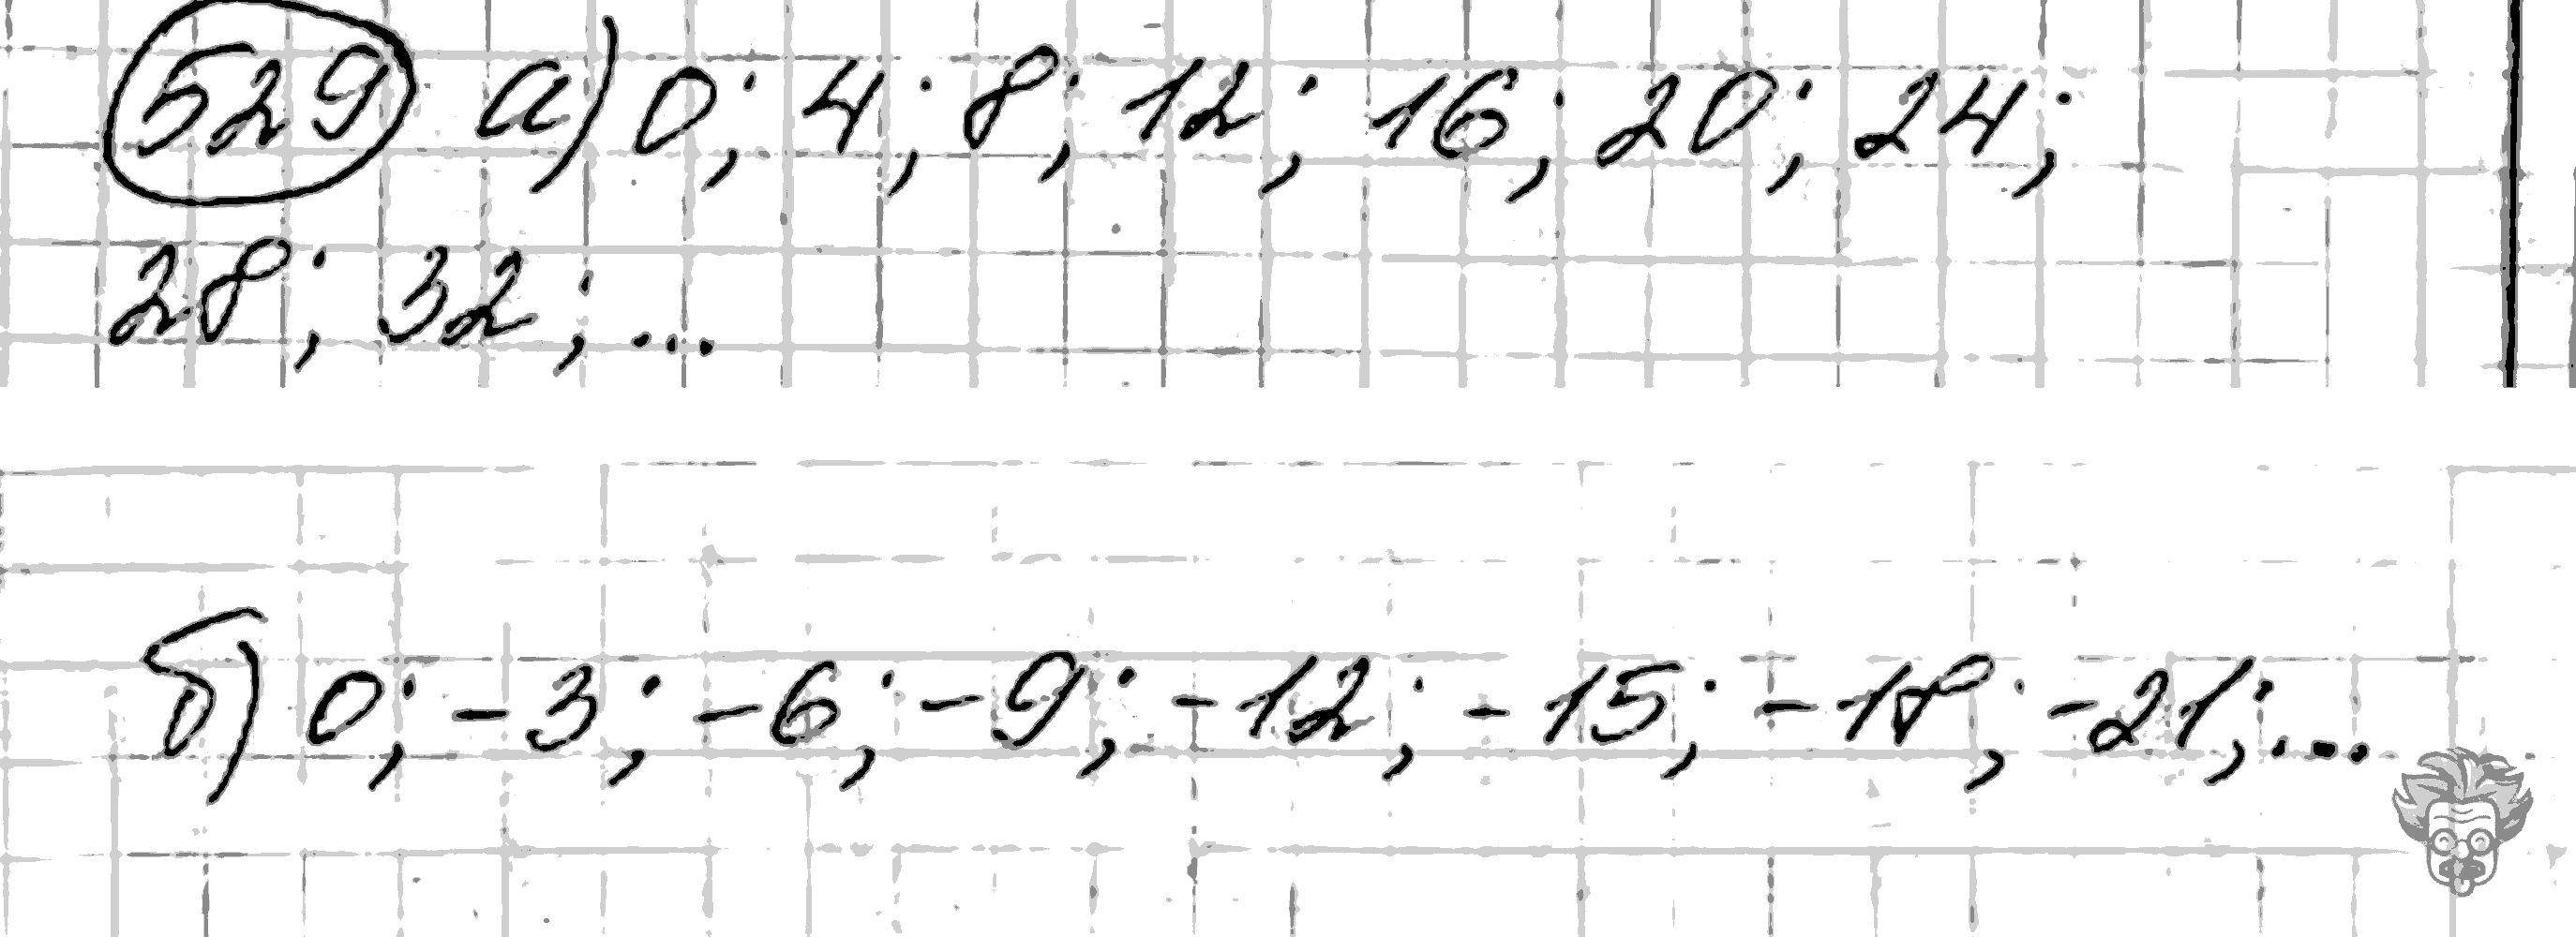 529 а) 0; 4; 8; 12; 16; 20; 24;
28; 32; ...
б) 0; -3; -6; -9; -12; -15; -18; -21; ...